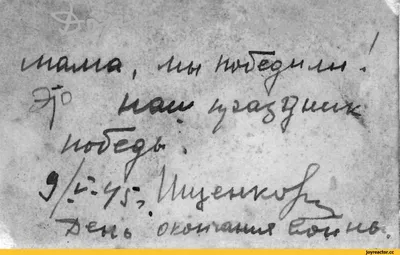 мама, мы победили!
Это наш праздник
победы.
9/V-45. Ищенко
День окончания войны.
joyreactor.cc